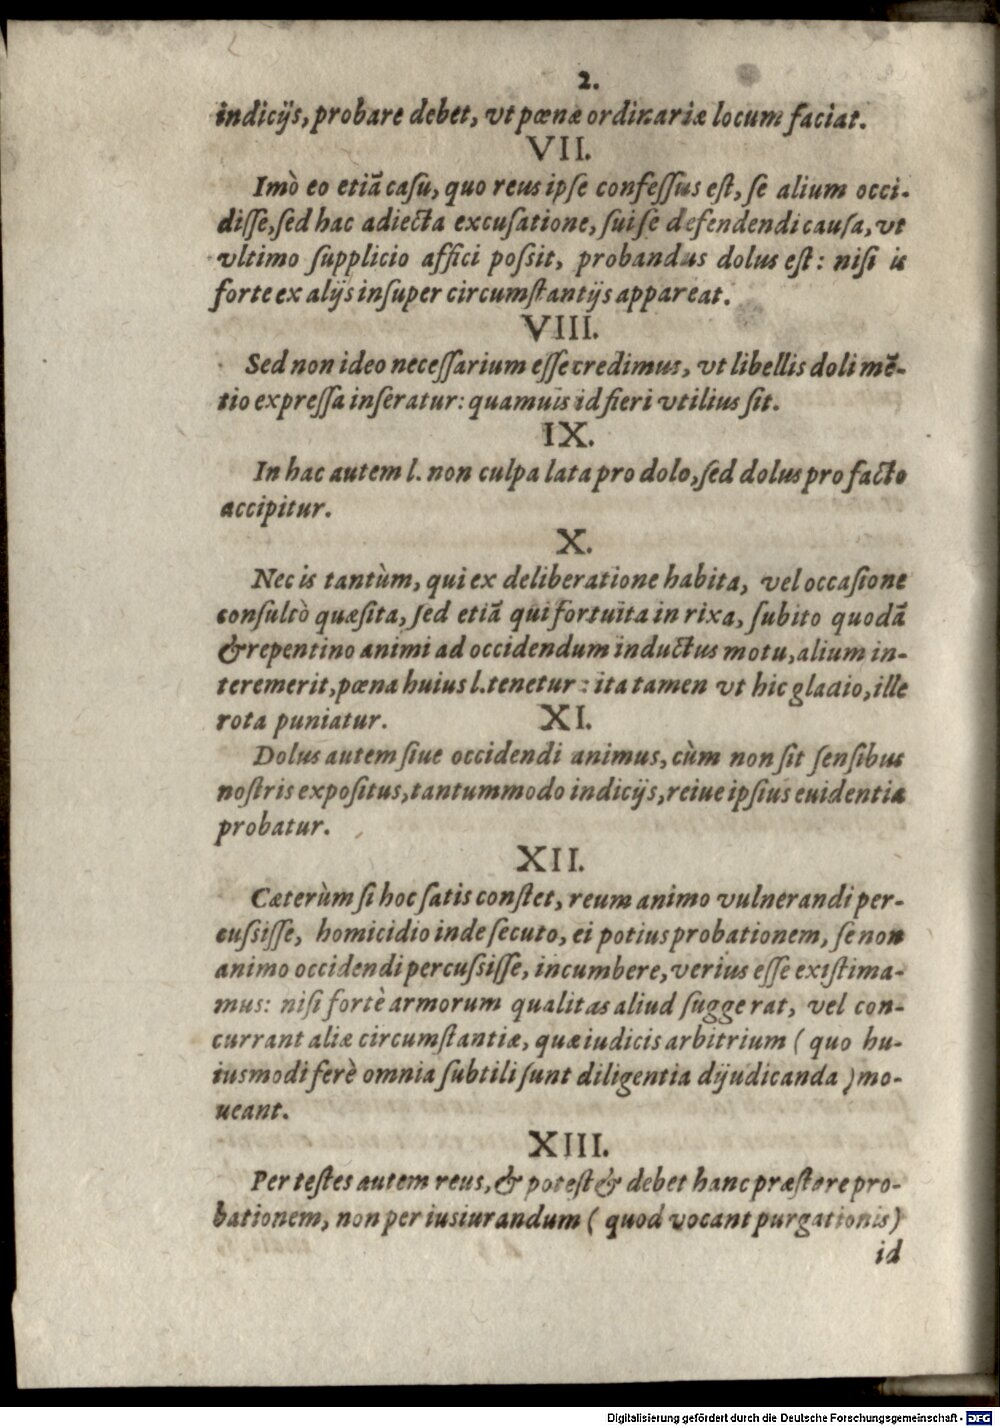 2.
indicijs, probare debet, vt pœnæ ordinariæ locum faciat.
VII.
Imò eo etiã casu, quo reus ipse confessus est, se alium occi-
disse, sed hac adiecta excusatione, sui se defendendi causa, vt
vltimo supplicio affici possit, probandus dolus est: nisi is
forte ex alijs insuper circumstantijs appareat.
VIII.
Sed non ideo necessarium esse credimus, vt libellis doli mẽ-
tio expressa inseratur: quamuis id fieri vtilius sit.
IX.
In hac autem l. non culpa lata pro dolo, sed dolus pro facto
accipitur.
X.
Nec is tantùm, qui ex deliberatione habita, vel occasione
consultò quæsita, sed etiã qui fortuita in rixa, subito quodã
& repentino animi ad occidendum inductus motu, alium in-
teremerit, pœna huius l. tenetur: ita tamen vt hic gladio, ille
rota puniatur. XI.
Dolus autem siue occidendi animus, cùm non sit sensibus
nostris expositus, tantummodo indicijs, reiue ipsius euidentia
probatur.
XII.
Cæterùm si hoc satis constet, reum animo vulnerandi per-
cussisse, homicidio inde secuto, ei potius probationem, se non
animo occidendi percussisse, incumbere, verius esse existima-
mus: nisi fortè armorum qualitas aliud suggerat, vel con-
currant aliæ circumstantiæ, quæ iudicis arbitrium ( quo hu-
iusmodi ferè omnia subtili sunt diligentia dijudicanda ) mo-
ueant.
XIII.
Per testes autem reus, & potest & debet hanc præstare pro-
bationem, non per iusiurandum ( quod vocant purgationis)
id
Digitalisierung gefördert durch die Deutsche Forschungsgemeinschaft - DFG